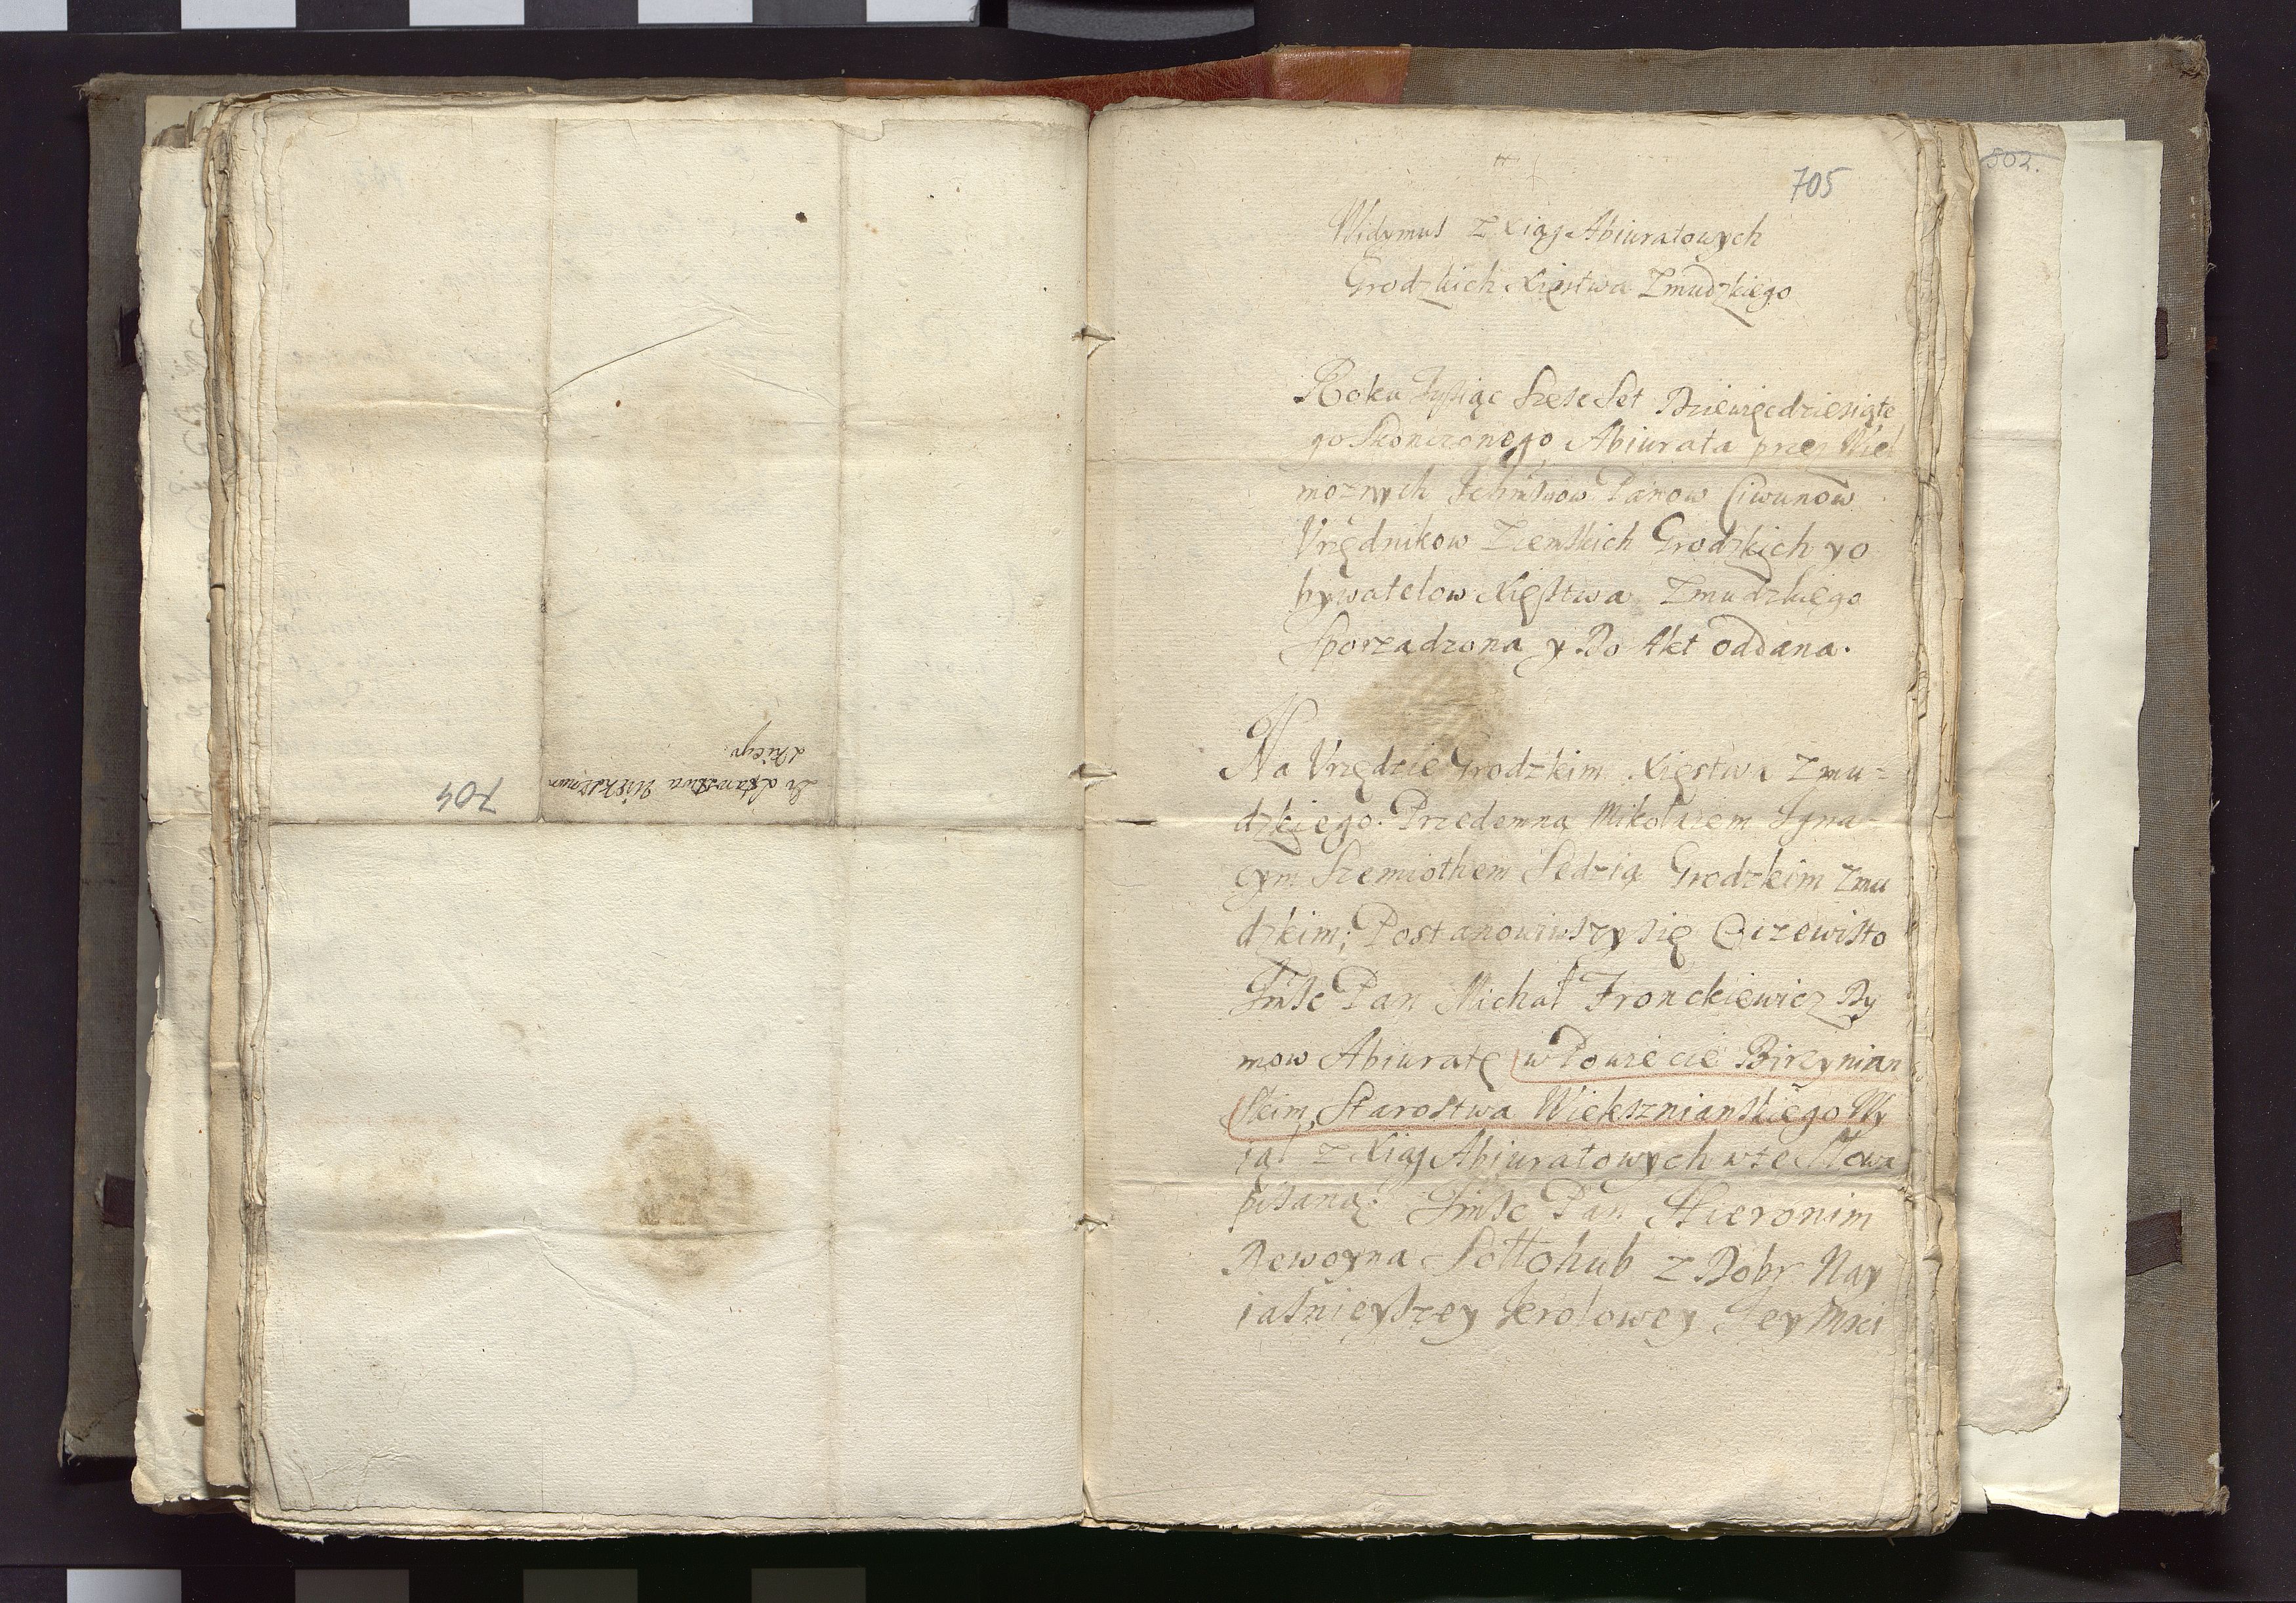 704
Ze Starostwa Wiekszniań
skiego
705
802.
Widymus z Xiąg Abiuratowych
Grodzkich Xięstwa Zmudzkiego
Roku Tysiąc Szesc Set Dziewięcdziesiąte
go Skonczonego Abiurata przez Wiel
moznych Ichmsciow Panow Ciwunow
Vrzędnikow Ziemskich Grodzkich y o
bywatelow Xięstwa Zmudzkiego
Sporządzona y Do Akt oddana.
Na Vrzędzie Grodzkim Xięstwa Zmu=
dzkiego. Przedemną Mikołaiem Igna=
cym Szemiothem Sędzią Grodzkim Zmu
dzkim; Postanowiwszy się Oczewisto
Imsc Pan Michał Fronckiewicz Dy
mow Abiuratę w Powiecie Birzynian
skim, Starostwa Wieksznianskiego Wy
iął z Xiąg Abiuratowych w te słowa
pisaną: Imsc Pan Hieronim
Dewoyna Sołłohub z Dobr Nay
iasnieyszey krolowey Jey Msci